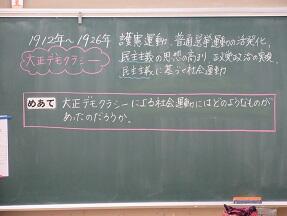 1912年～1926年
大正デモクラシー
護憲運動、普通選挙運動の活発化、
民主主義の思想の高まり、政党政治の実現、
民主主義に基づく社会運動
めあて
大正デモクラシーによる社会運動にはどのようなものが
あったのだろうか。